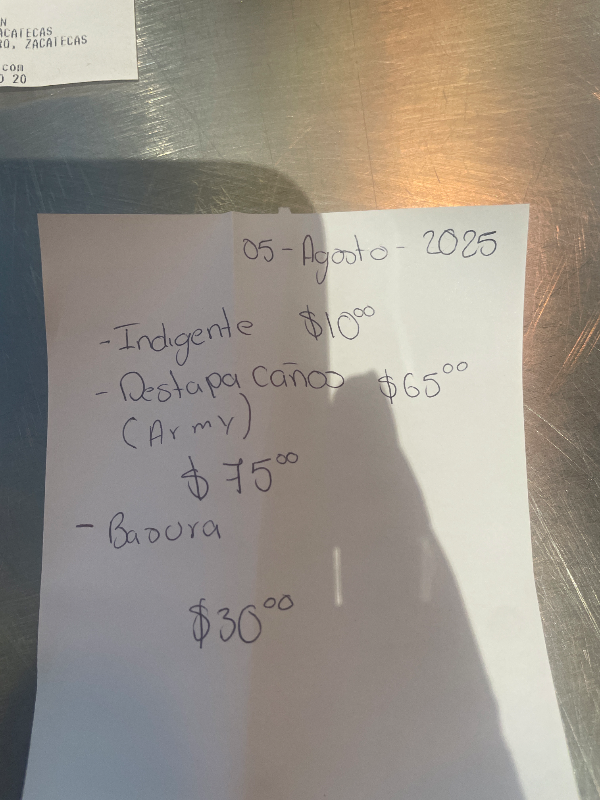 N
ACATECAS
RO, ZACATECAS
com
O 20
05-Agosto-2025
-Indigente $10⁰⁰
-Destapa Caños $65⁰⁰
(Army)
$75⁰⁰
- Basura
$30⁰⁰